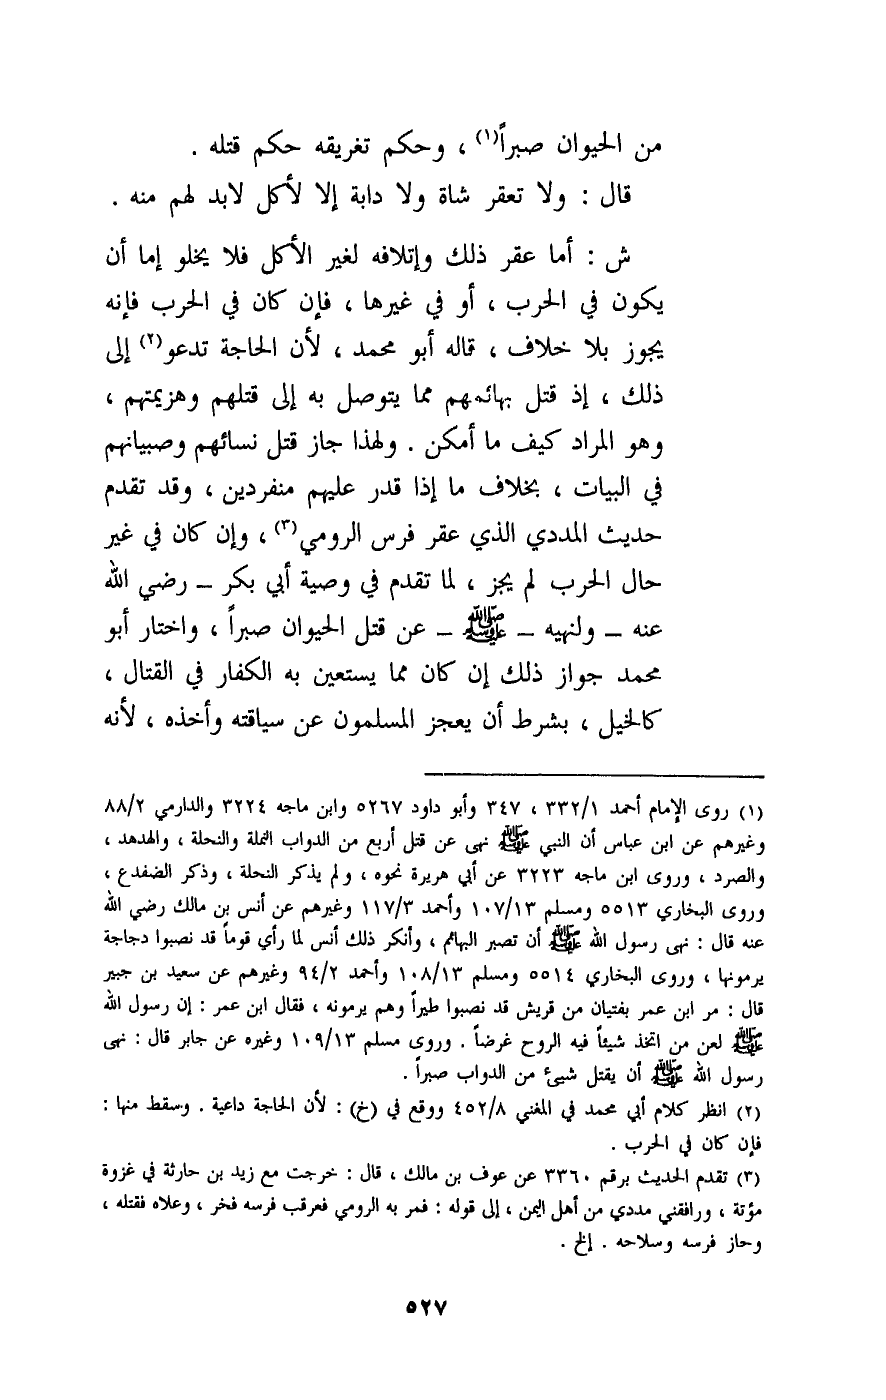 من الحيوان صبراً(١) ، وحكم تغريقه حكم قتله .
قال : ولا تعقر شاة ولا دابة إلا لأكل لابد لهم منه .
ش : أما عقر ذلك وإتلافه لغير الأكل فلا يخلو إما أن
يكون في الحرب ، أو في غيرها ، فإن كان في الحرب فإنه
يجوز بلا خلاف ، قاله أبو محمد ، لأن الحاجة تدعو(٢) إلى
ذلك ، إذ قتل بهائمهم مما يتوصل به إلى قتلهم وهزيمتهم ،
وهو المراد كيف ما أمكن . ولهذا جاز قتل نسائهم وصبيانهم
في البيات ، بخلاف ما إذا قدر عليهم منفردين ، وقد تقدم
حديث المددي الذي عقر فرس الرومي(٣) ، وإن كان في غير
حال الحرب لم يجز ، لما تقدم في وصية أبي بكر – رضي الله
عنه – ولنهيه – ﷺ – عن قتل الحيوان صبراً ، واختار أبو
محمد جواز ذلك إن كان مما يستعين به الكفار في القتال ،
كالخيل ، بشرط أن يعجز المسلمون عن سياقته وأخذه ، لأنه
(١) روى الإمام أحمد ٣٣٢/١ ، ٣٤٧ وأبو داود ٥٢٦٧ وابن ماجه ٣٢٢٤ والدارمي ٨٨/٢
وغيرهم عن ابن عباس أن النبي ﷺ نهى عن قتل أربع من الدواب النملة والنحلة ، والهدهد ،
والصرد ، وروى ابن ماجه ٣٢٢٣ عن أبي هريرة نحوه ، ولم يذكر النحلة ، وذكر الضفدع ،
وروى البخاري ٥٥١٣ ومسلم ١٠٧/١٣ وأحمد ١١٧/٣ وغيرهم عن أنس بن مالك رضي الله
عنه قال : نهى رسول الله ﷺ أن تصبر البهائم ، وأنكر ذلك أنس لما رأي قوماً قد نصبوا دجاجة
يرمونها ، وروى البخاري ٥٥١٤ ومسلم ١٠٨/١٣ وأحمد ٩٤/٢ وغيرهم عن سعيد بن جبير
قال : مر ابن عمر بفتيان من قريش قد نصبوا طيراً وهم يرمونه ، فقال ابن عمر : إن رسول الله
ﷺ لعن من اتخذ شيئاً فيه الروح غرضاً . وروى مسلم ١٠٩/١٣ وغيره عن جابر قال : نهى
رسول الله ﷺ أن يقتل شيئ من الدواب صبراً .
(٢) انظر كلام أبي محمد في المغني ٤٥٢/٨ ووقع في (خ) : لأن الحاجة داعية . وسقط منها :
فإن كان في الحرب .
(٣) تقدم الحديث برقم ٣٣٦٠ عن عوف بن مالك ، قال : خرجت مع زيد بن حارثة في غزوة
مؤتة ، ورافقني مددي من أهل اليمن ، إلى قوله : فمر به الرومي فعرقب فرسه فخر ، وعلاه فقتله ،
وحاز فرسه وسلاحه . إلخ .
٥٢٧